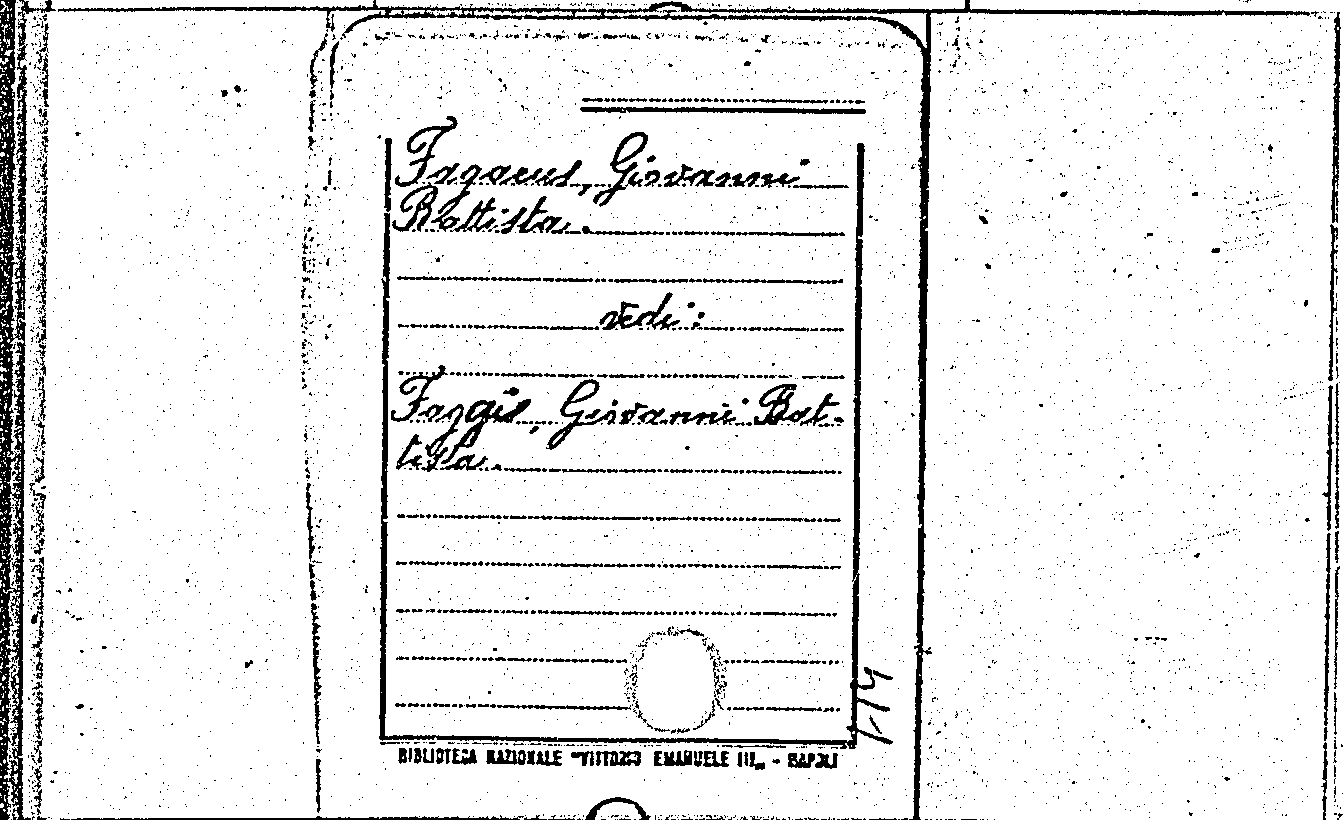 Fagaeus, Giovanni
Battista.
vedi:
Faggis, Giovanni Bat-
tista.
BIBLIOTECA NAZIONALE "VITTORIO EMANUELE III„ - NAPOLI